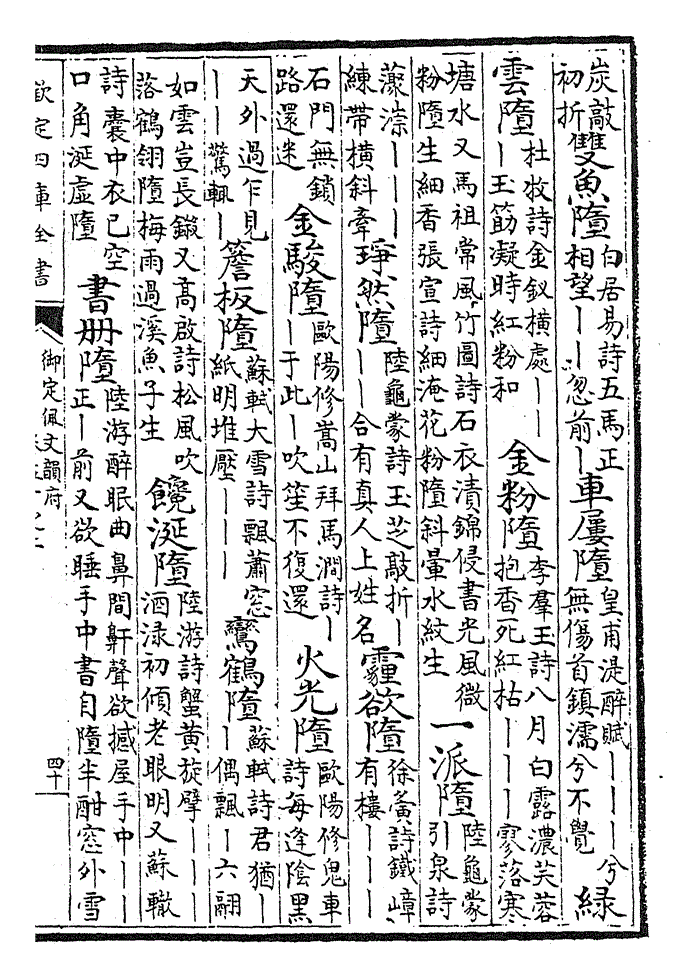 炭敲初折雙魚墮白居易詩五馬正相望丨丨忽前丨車屢墮皇甫湜醉賦丨丨丨兮無傷首鎮濡兮不覺綠
雲墮杜牧詩金釵橫處丨丨丨玉筯凝時紅粉和金粉墮李羣玉詩八月白露濃芙蓉抱香死紅枯丨丨丨寥落寒
塘水又馬祖常風竹圖詩石衣漬錦侵書光風微粉墮生細香張宣詩細淹花粉墮斜暈水紋生一派墮陸龜蒙引泉詩
濛淙丨丨丨練帶橫斜牽琤然墮陸龜蒙詩玉芝敲折丨丨丨合有真人上姓名霾欲墮徐賁詩鐵嶂有樓丨丨丨
石門無鎖路還迷金駿墮歐陽修嵩山拜馬澗詩丨丨于此丨吹笙不復還火光墮歐陽修鬼車詩每逢陰黑
天外過乍見丨丨驚輒丨簷板墮蘇軾大雪詩飄蕭窓紙明堆壓丨丨丨鸞鶴墮蘇軾詩君猶丨丨偶飄丨六翮
如雲豈長鎩又高啟詩松風吹落鶴翎墮梅雨過溪魚子生饞涎墮陸游詩蟹黃旋擘丨丨丨酒淥初傾老眼明又蘇轍
詩囊中衣已空口角涎虛墮書册墮陸游醉眠曲鼻間鼾聲欲撼屋手中丨丨正丨前又欲睡手中書自墮半酣窓外雪
欽定四庫全書
御定佩文韻府
四十